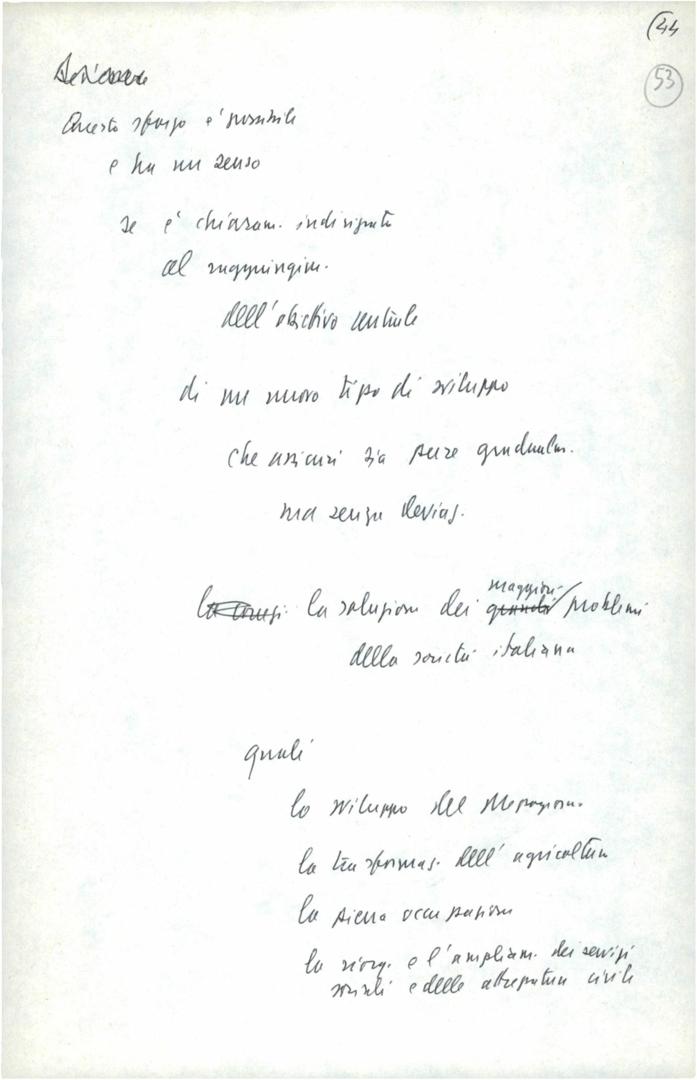 (44
53
Questo sforzo e' possibile
e ha un senso
se e' chiaram. indirizzato
al raggiungim.
dell'obiettivo centrale
di un nuovo tipo di sviluppo
che assicuri sia pure gradualm.
ma senza deviaz.
la soluzione dei grandi maggiori problemi
della società italiana
quali
lo sviluppo del Mezzogiorno
la trasformaz. dell'agricoltura
la piena occupazione
la riorg. e l'ampliam. dei servizi
sociali e delle attrezzature civili